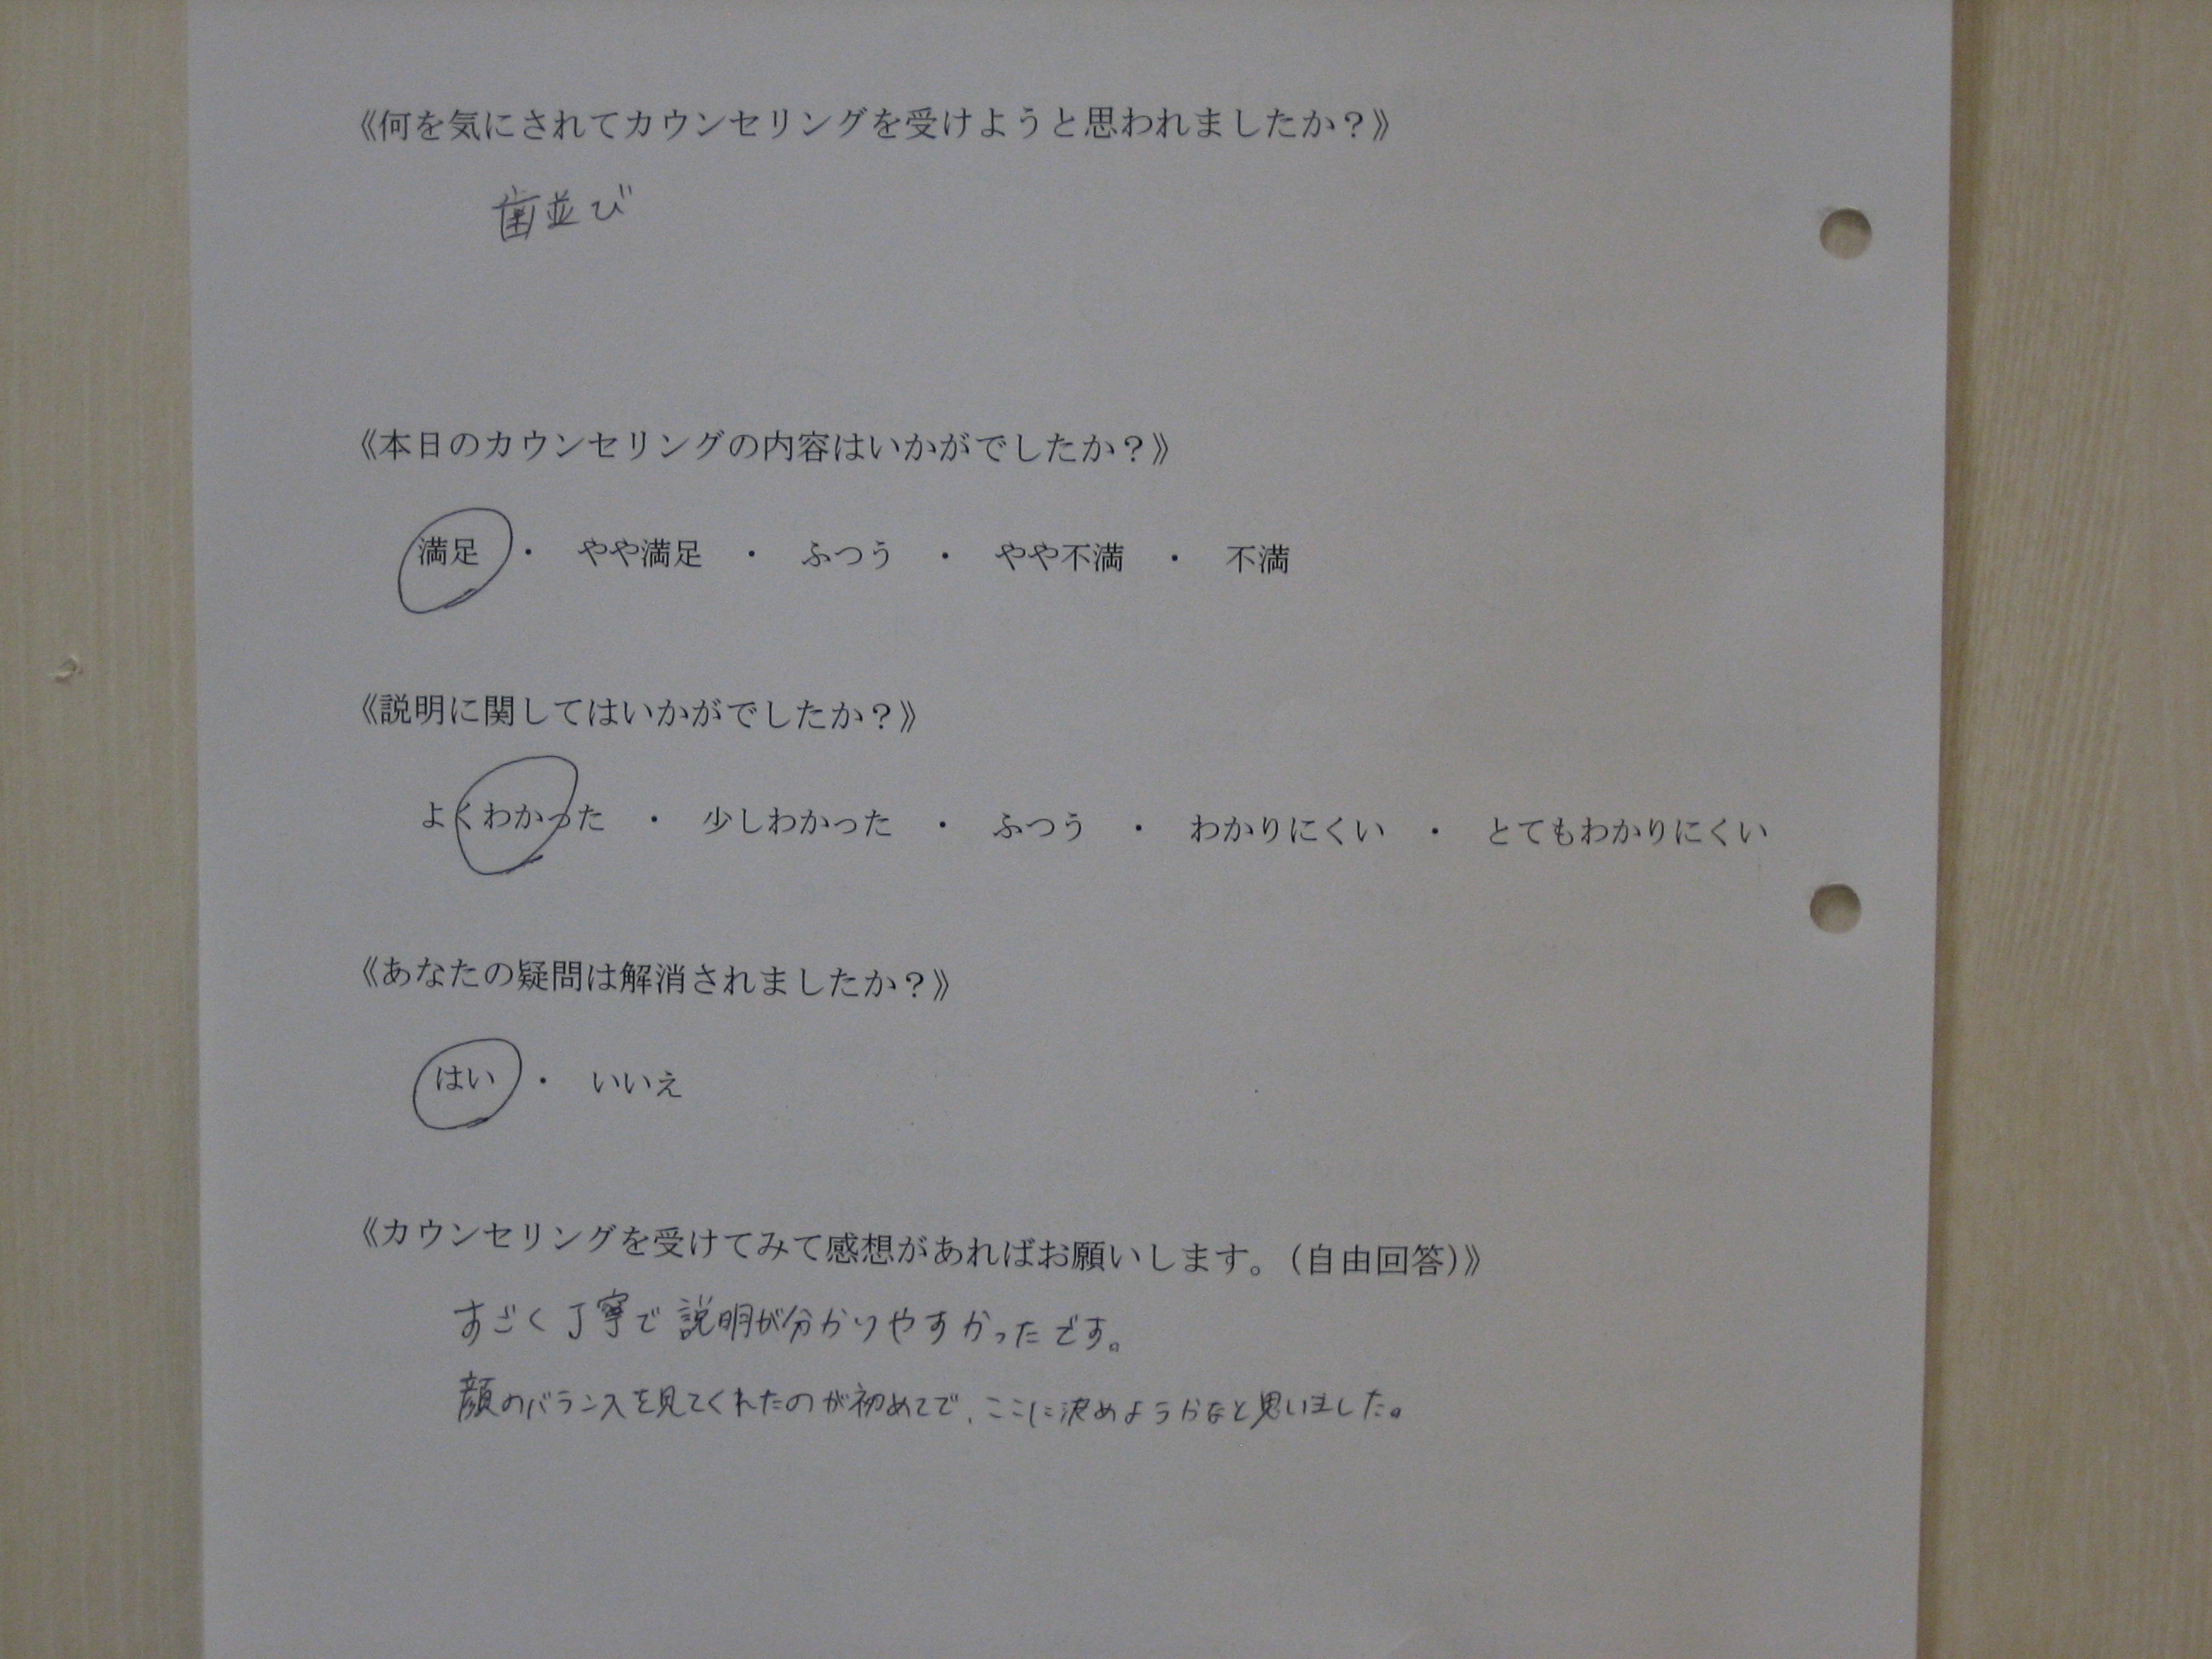 《何を気にされてカウンセリングを受けようと思われましたか？》
歯並び
《本日のカウンセリングの内容はいかがでしたか？》
満足 ・ やや満足 ・ ふつう ・ やや不満 ・ 不満
《説明に関してはいかがでしたか？》
よくわかった ・ 少しわかった ・ ふつう ・ わかりにくい ・ とてもわかりにくい
《あなたの疑問は解消されましたか？》
はい ・ いいえ
《カウンセリングを受けてみて感想があればお願いします。（自由回答）》
すごく丁寧で説明が分かりやすかったです。
顔のバランスを見てくれたのが初めてで、ここに決めようかなと思いました。